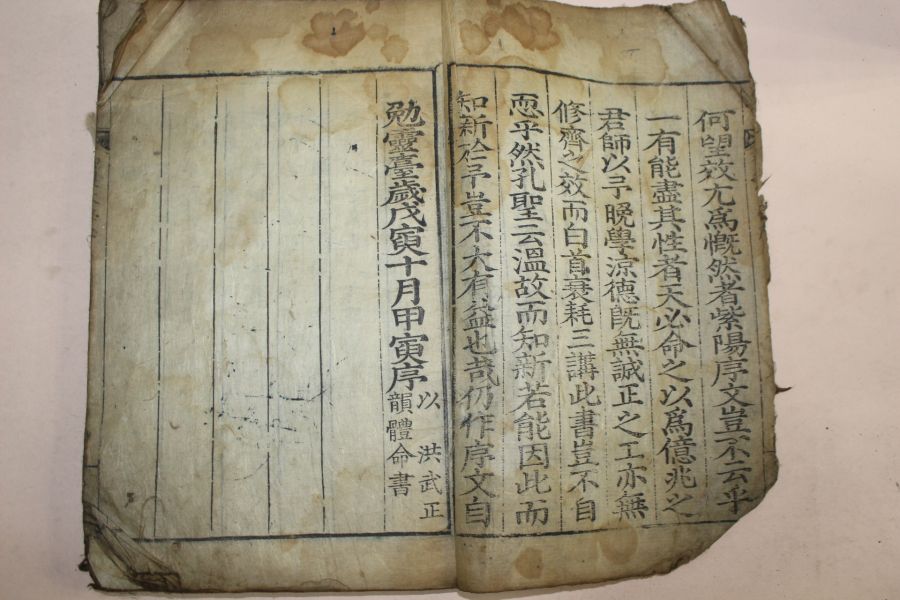 何望效尤爲慨然者紫陽序文豈不云乎
一有能盡其性者天必命之以爲億兆之
君師以予晚學涼德旣無誠正之工亦無
修齊之效而白首衰耗三講此書豈不自
恧乎然孔聖云溫故而知新若能因此而
知新於予豈不大有益也哉仍作序文自
勉靈臺歲戊寅十月甲寅序
以洪武正
韻體命書